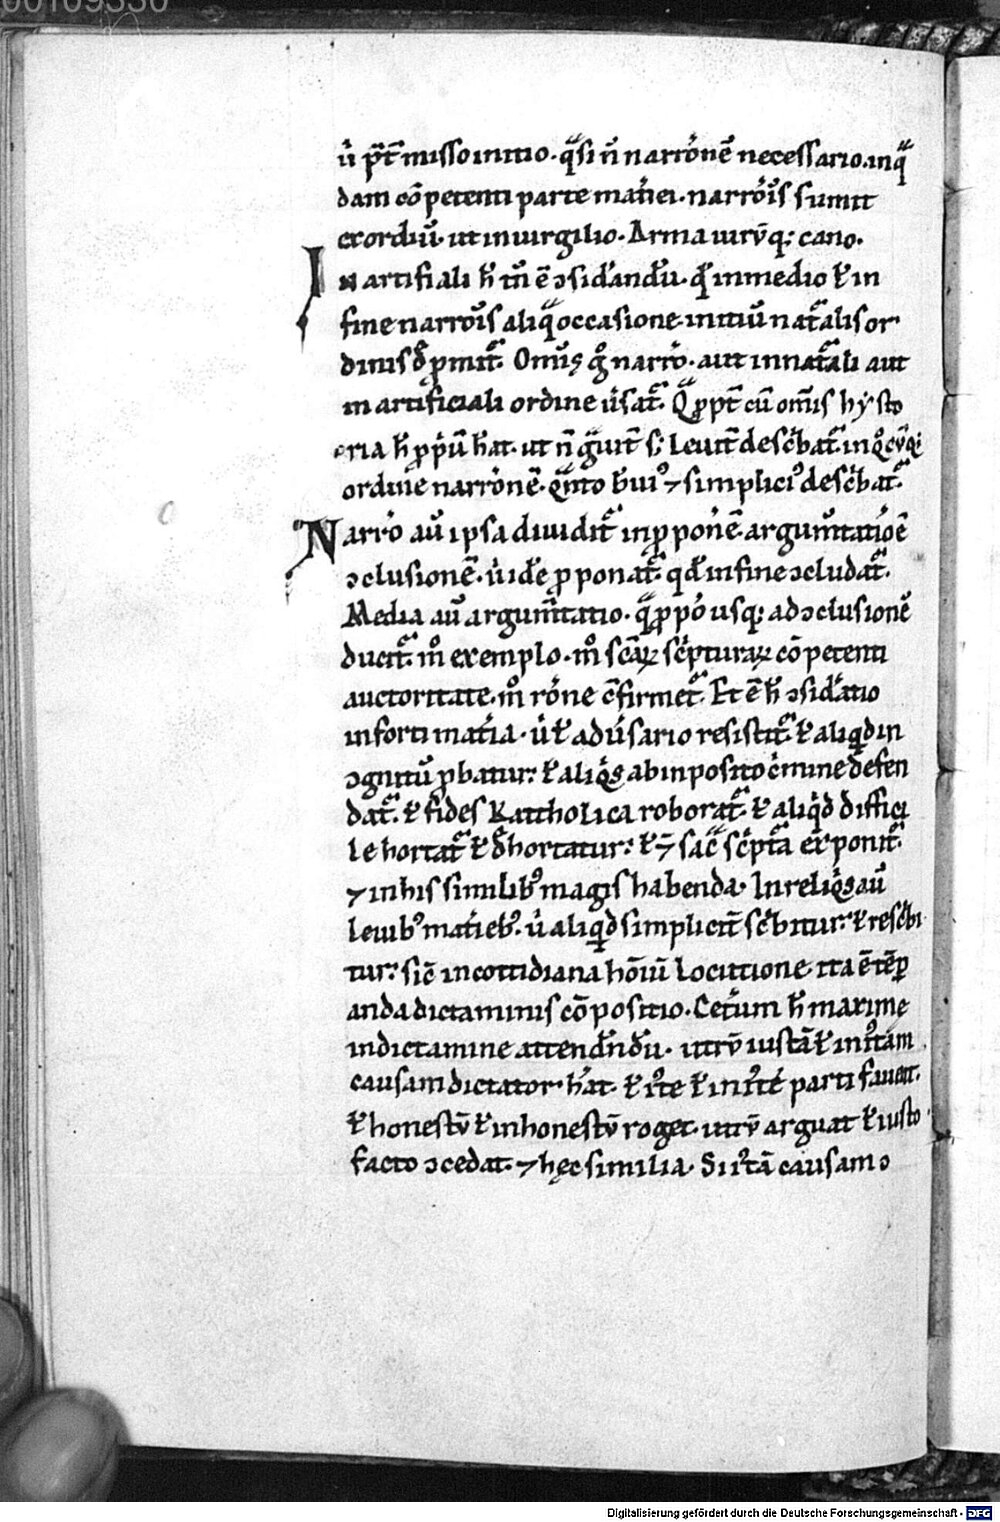 00109330
ū p̄t̄misso initio. q̄si n̄ narrōnē necessario. in q̄
dam cōpetenti parte mat̄iei. narrōis sumit
exordiū. ut in uirgilio. Arma uirūq; cano.
In artifiali h̄ tn̄ ē ꝯsid̄andū. qd̄ in medio ł in
fine narrōis aliq̄ occasione initiū nat̄alis or
dinis p̄mit̄. Om̄is g̊ narrō. aut in nat̄ali aut
in artificiali ordine ūsat̄. cū om̄is hẏsto
ria h̄ ꝓpiū h̄at. ut n̄ ḡuit̄ s; leuit̄ desc̄bat̄. in q̊cūq;
ordine narrōnē. q̄nto b̄uiꝰ ⁊ simpliciꝰ desc̄bat̄.
Narrō aū ipsa diuidit̄ in ꝓponē. argum̄tatiōē
ꝯclusionē. ꝓponat̄. qd̄ in fine ꝯcludat̄.
Media aū argum̄tatio. q̄ ꝓpō usq; ad ꝯclusionē
ducit̄. m̊ exemplo. m̊ sc̄aꝝ sc̄pturaꝝ cōpetenti
auctoritate. m̊ rōne cōfirmet̄. Et ē h̄ ꝯsid̄atio
in forti mat̄ia. ū ł adūsario resistit̄ ł aliqd̄ in
ꝯgnitū ꝓbatur. ł aliq̄s ab inposito c̄mine defen
dat̄. ł fides Kattholica roborat̄. ł aliqd̄ diffici
le hortat̄ ł dehortatur. ł sac̄ sc̄pt̄a exponit̄.
⁊ in his similibꝰ magis habenda. In reliq̄s aū
leuibꝰ mat̄iebꝰ. ū aliqd̄ simplicit̄ sc̄bitur. ł resc̄bi
tur. sic̄ in cottidiana hōiū locutione. ita ē tēꝑ
anda dictaminis cōpositio. Cet̄um h̄ maxime
in dictamine attend̄ndū. utrū iustā ł iniꝰtam
causam dictator. h̄at. ł iꝰte ł iniꝰte parti faueat.
ł honestū ł inhonestū roget. utrū arguat ł iusto
facto ꝯcedat. ⁊ hęc similia. Si iꝰtā causam ꝯ
Digitalisierung gefördert durch die Deutsche Forschungsgemeinschaft - DFG